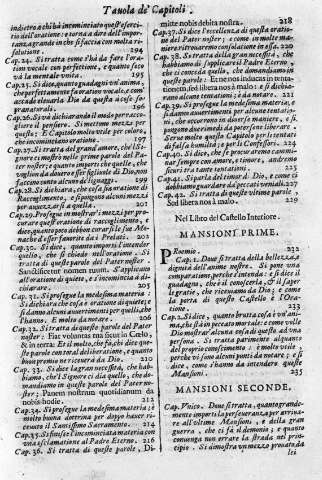 Tauola de' Capitoli.
indietro che hà incominciato quest' eserci-
tio dell' oratione: e torna à dire dell' impor-
tanza grande in che si faccia con molta ri-
solutione. 194
Cap. 24. Si tratta come s'hà da fare l'ora-
tion vocale con perfettione, e quanto sac-
và la mentale vnita. 195
Cap. 25. Si dice, quanto guadagni vn' anima,
che perfettamente fa oration vocale, e com'
accade eleuarla Dio da questa à cose so-
pranaturali. 196
Cap. 26. Si và dichiarando il modo per racco-
gliere il pensiero. Si mettono mezzi per
questo: E Capitolo molto vtile per coloro,
che incominciano oratione. 197
Cap. 27. Si tratta del grande amore, che'l Si-
gnore ci mostrò nelle prime parole del Pa-
ter noster; e quanto importi che quelle, che
vogliono da douero esser figliuole di Dio, non
facciano conto alcuno di lignaggio. 199
Cap. 28. Si dichiara, che cosa sia oratione di
Raccoglimento, e si pongono alcuni mezzi
per assuefarsi à quella. 201
Cap. 29. Prosegue in mostrar' i mezzi per pro-
curare quest' oratione di raccoglimento, e
dice, quanto poco debbono curarsi le Mo-
nache d'esser fauorite da' Prelati. 203
Cap. 30. Si dice quanto importi l'intender
quello, che si chiede nell' oratione. Si
tratta di queste parole del Pater noster:
Sanctificetur nomen tuum. S'applicano
all' oratione di quiete, e s'incomincia à di-
chiarare. 205
Cap. 31. Si prosegue la medesima materia:
si dichiara che cosa è oratione di quiete; e
si danno alcuni auuertimenti per quelli, che
l'hanno. E molto da notare. 206
Cap. 32. Si tratta di queste parole del Pater
noster: Fiat voluntas tua sicut in Cœlo,
& in terra: Et il molto, che fà, chi dice que-
ste parole con total deliberatione, e quanto
buon premio ne riceuerà da Dio. 209
Cap. 33. Si dice la gran necessità, che hab-
biamo, che'l Signore ci dia quello, che do-
mandiamo in queste parole del Pater no-
ster: Panem nostrum quotidianum da
nobis hodie. 212
Cap. 34. Si prosegue la medesima materia; è
molto buona dottrina per dopo hauer ri-
ceuuto il Santissimo Sacramento. 214
Cap. 35. Si finisce l'incominciata materia con
vna esclamatione al Padre Eterno. 216
Cap. 36. Si tratta di queste parole, Di-
mitte nobis debita nostra. 218
si dice l'eccellenza di questa oratione
del Pater noster; e come in molte ma-
niere ritrouaremo consolatione in essa. 220
Cap. 38. Si tratta della gran necessità, che
habbiamo di supplicare il Padre Eterno,
che ci conceda quello, che domandiamo in
queste parole: Et ne nos inducas in tenta-
tionem, sed libera nos à malo: e si dichia-
rano alcune tentationi; è da notare. 221
Cap. 39. Si prosegue la medesima materia, e
si danno auuertimenti per alcune tentatio-
ni, che occorrono in diuerse maniere, e si
pongono due rimedij da potersene liberare.
Serue molto questo Capitolo per i tentati
di falsa humiltà; e per li Confessori. 223
Cap. 40. Si dice, che se procuraremo cammi-
nar sempre con amore, e timore, andremo
sicuri trà tante tentationi. 225
Cap. 41. Si parla del timor di Dio, e come
dobbiamo guardarci da' peccati veniali. 227
Cap. 42. Si tratta di queste vltime parole,
Sed libera nos à malo. 229
Nel Libro del Castello Interiore.
MANSIONI PRIME.
Proemio. 232
Cap. 1. Doue si tratta della bellezza, e
dignità dell' anime nostre. Si pone vna
comparatione, perche s'intenda: e si dice il
guadagno, che è il conoscerla, & il saper
le gratie, che riceuiamo da Dio; e come
la porta di questo Castello è l'Ora-
tione.
Cap. 2. Si dice, quanto brutta cosa è vn' ani-
ma, che stà in peccato mortale; e come volle
Dio mostrar' alcuna cosa di questo ad vna
persona. Si tratta parimente alquanto
del proprio conoscimento: è molto vtile,
perche vi sono alcuni punti da notare; e si
dice, come s'hanno da intendere queste
Mansioni. 235
MANSIONI SECONDE.
Cap. Vnico. Doue si tratta, quanto grande-
mente importi la perseueranza per arriua-
re all' vltime Mansioni, e della gran
guerra, che ci fà il demonio; e quanto
conuenga non errare la strada nel prin-
cipio. Si dimostra vn mezzo prouato da
lei